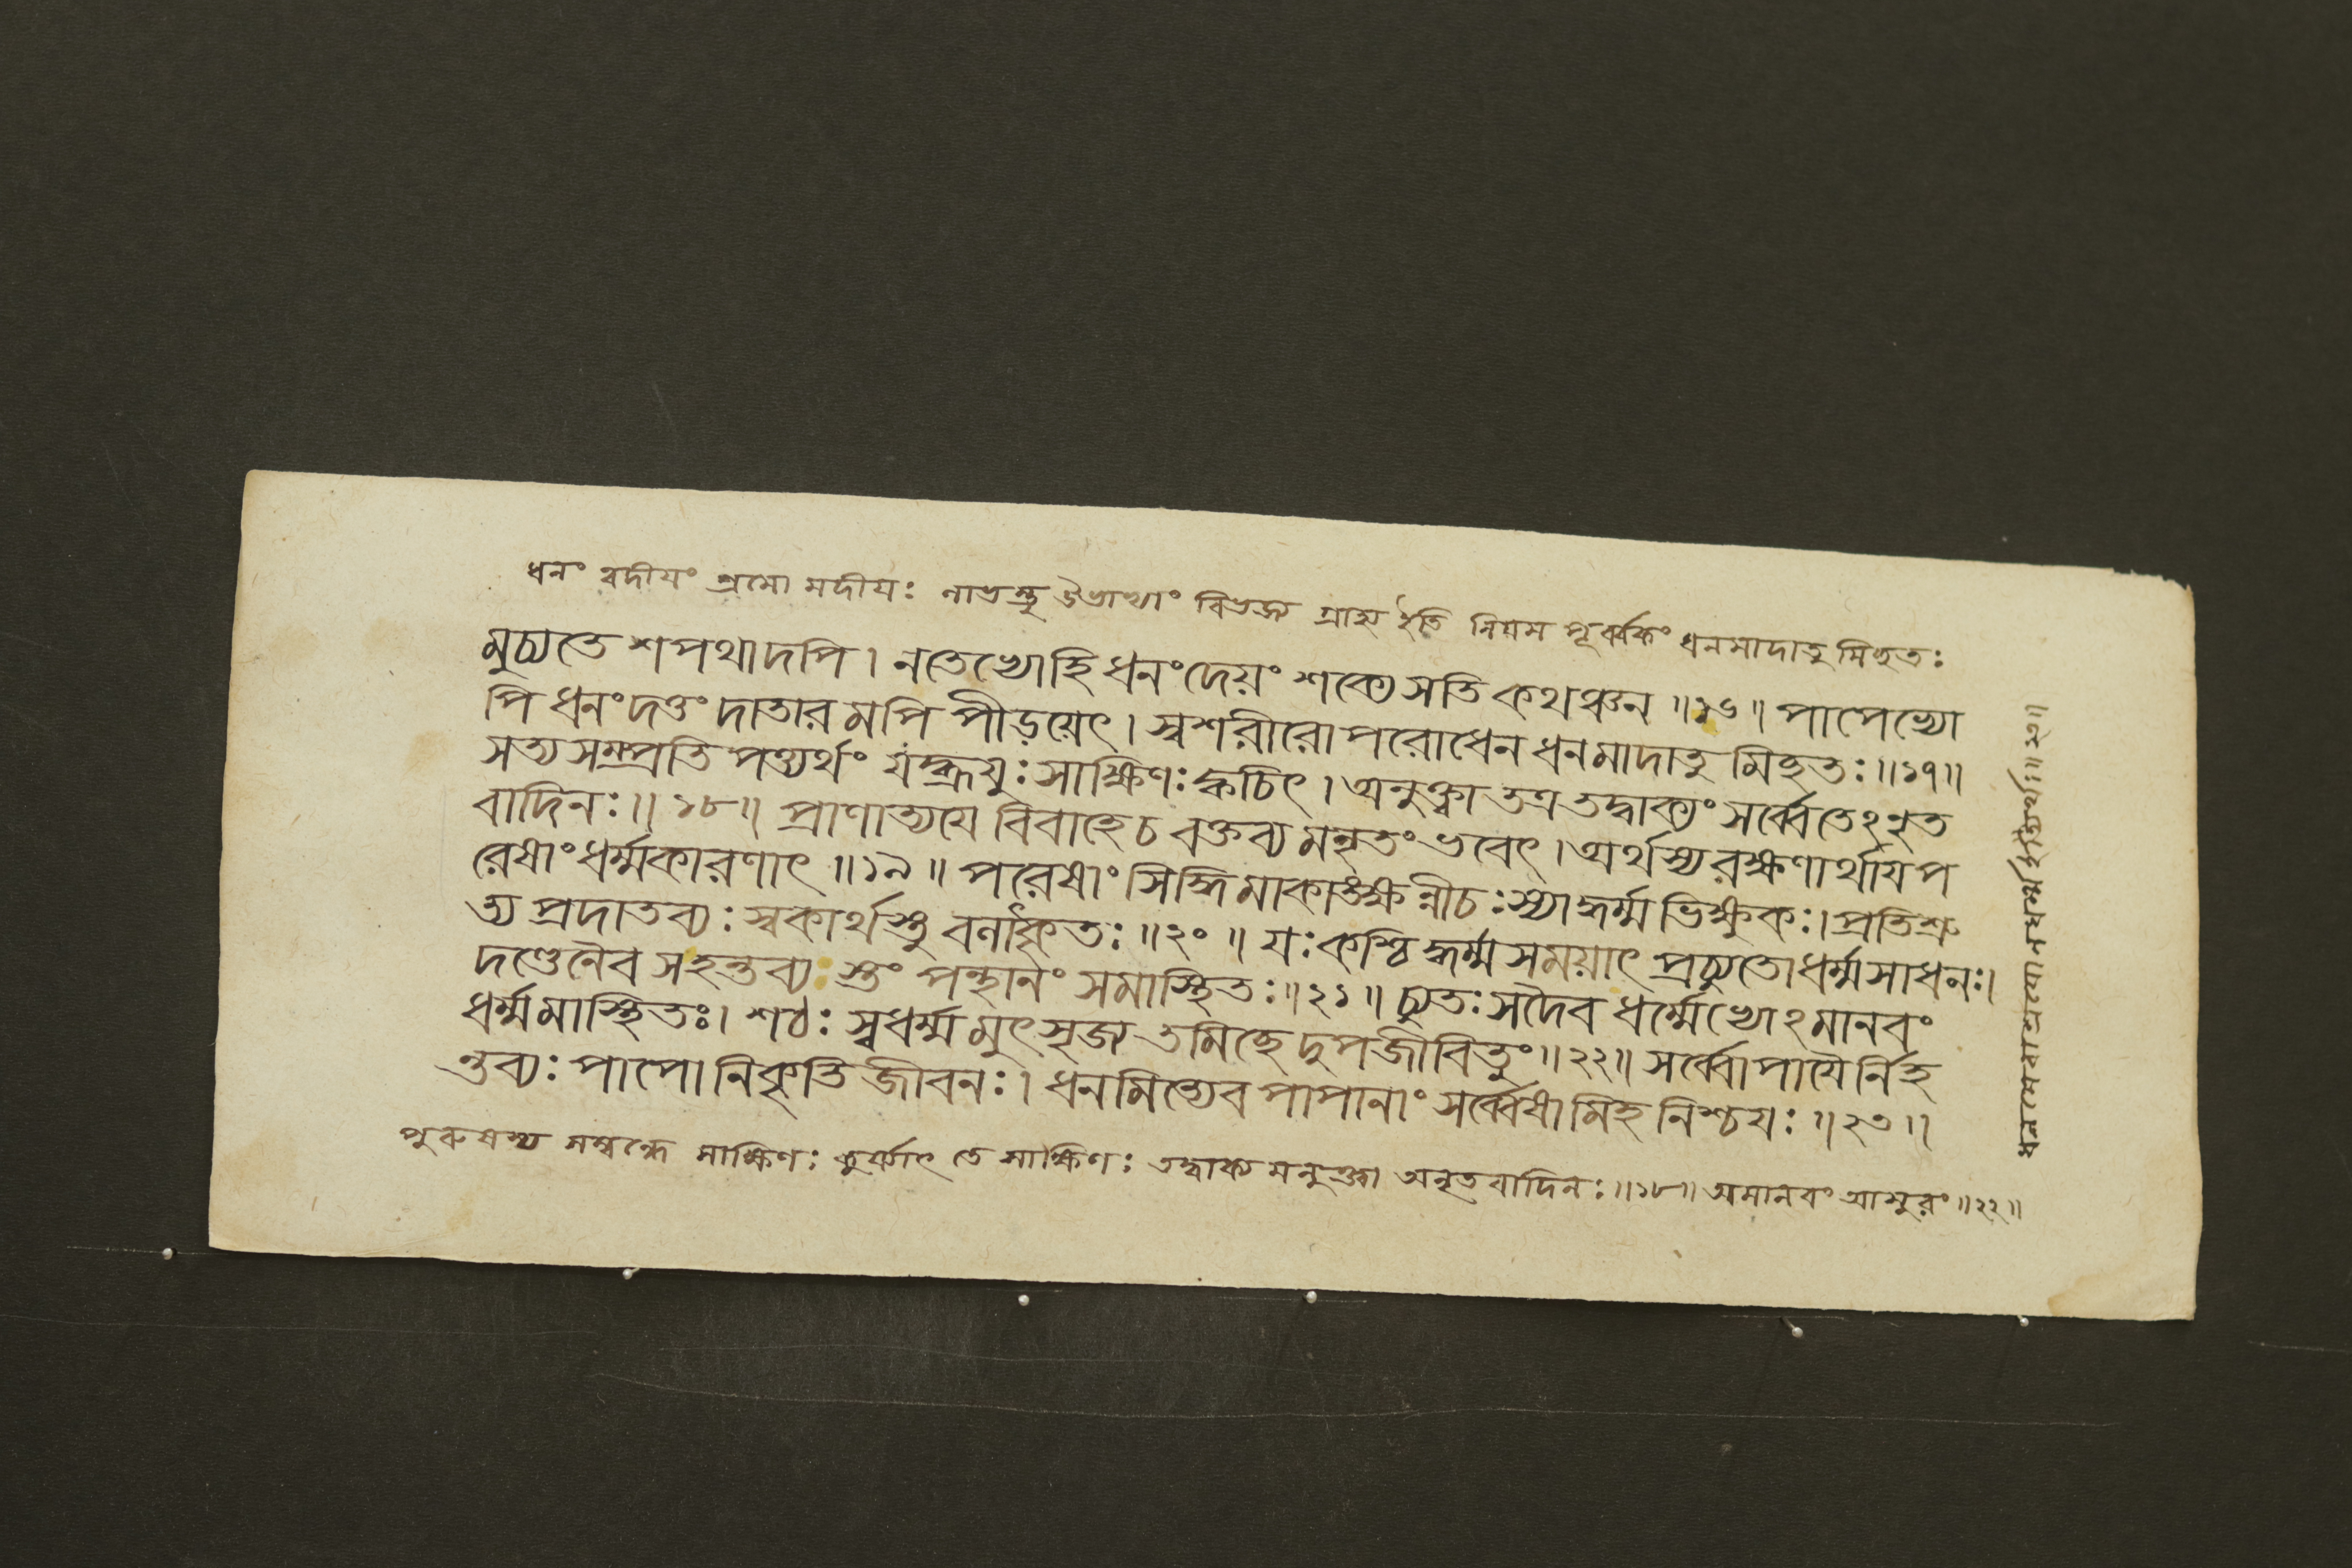 ধনং ত্বদীয়ং শ্রমো মদীয়ঃ লাভস্তু উভাভ্যাং বিভজ্য গ্রাহ্য ইতি নিয়ম পূর্ব্বকং ধনমাদাতু মিহতঃ
মুচ্যতে শপথাদপি। নতেভ্যোহি ধনংদেয়ং শক্যে সতি কথঞ্চন ॥১৬॥ পাপেভ্যো
পি ধনংদত্তং দাতার মপি পীড়য়েৎ। স্বশরীরোপরোধেন ধনমাদাতু মিহতঃ॥১৭॥
সত্য সম্প্রতি পত্যর্থং যংব্রূয়ুঃসাক্ষিণঃক্বচিৎ। অনুক্ত্বা তত্র তদ্বাক্যং সর্ব্বেতেঽনৃত
বাদিনঃ॥১৮॥ প্রাণাত্যয়ে বিবাহেচ বক্তব্য মনৃতং ভবেৎ। অর্থস্য রক্ষণার্থায় প
রেষাংধর্ম্মকারণাৎ ॥১৯॥ পরেষাং সিদ্ধিমাকাঙক্ষন্নীচঃস্যাদ্ধর্ম্ম ভিক্ষুকঃ। প্রতিশ্রু
ত্য প্রদাতব্যঃ স্বকার্থস্তু বলাৎকৃতঃ॥২০॥ যঃকশ্চিদ্ধর্ম্ম সময়াৎ প্রচ্যুতোধর্ম্মসাধনঃ।
দণ্ডেনৈব সহন্তব্য স্তং পন্থানং সমাস্থিতঃ॥২১॥ চ্যুতঃসদৈব ধর্ম্মেভ্যোঽমানবং
ধর্ম্মমাস্থিতঃ। শঠঃ স্বধর্ম্ম মুৎসৃজ্য তমিচ্ছেদুপজীবিতুং॥২২॥ সর্ব্বোপায়ৈর্নিহ
ন্তব্যঃ পাপোনিকৃতি জীবনঃ। ধনমিত্যেব পাপানাং সর্ব্বেষামিহ নিশ্চয়ঃ॥২৩॥
পুরুষস্য সম্বন্ধে সাক্ষিণঃ কুর্য্যাৎ তে সাক্ষিণঃ তদ্বাক্য মনুক্ত্বা অনৃতবাদিনঃ॥১৮॥ অমানবং আসুরং॥২২॥
ধনমেব